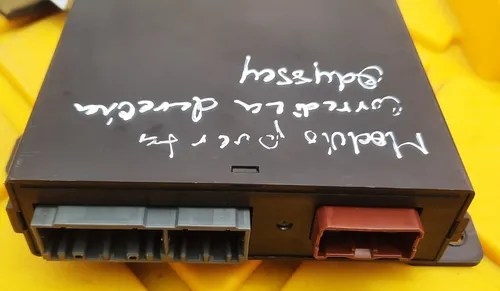 Modulo puerta
corrediza derecha
odyssey